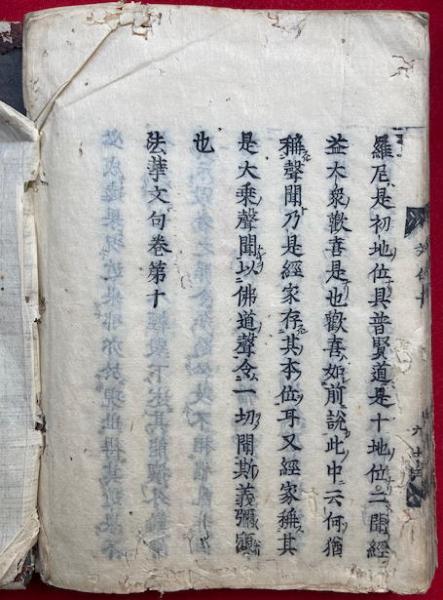 羅尼是初地位具普賢道是十地位二聞經
益大衆歡喜是也歡喜如前說此中云何猶
稱聲聞乃是經家存其本位耳又經家稱其
是大乘聲聞以佛道聲令一切聞斯義彌顯
也
法華文句卷第十